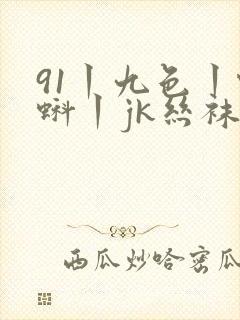 91丨九色丨
蝌丨jk丝袜
西瓜炒哈密瓜